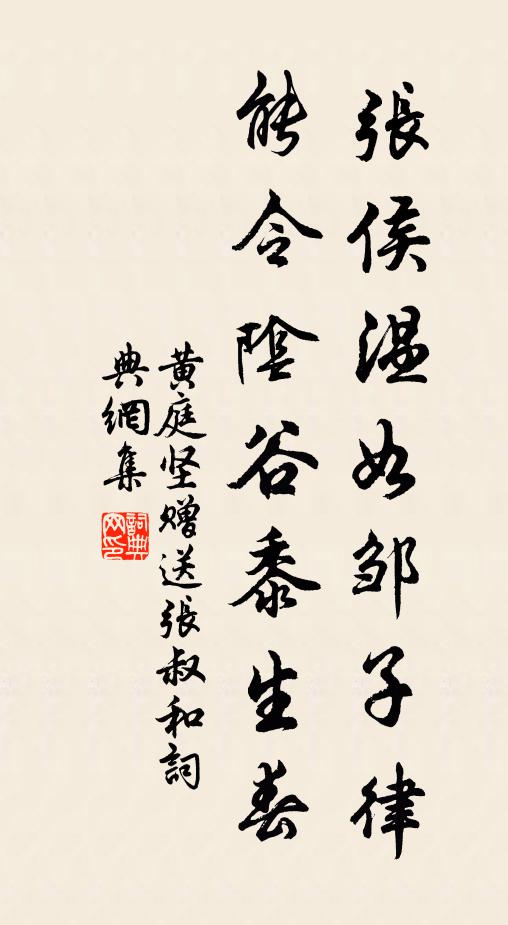 張侯温如邹子律
能令陰谷黍生春
黄庭坚赠送張叔和詞
典網集
詞典
网印